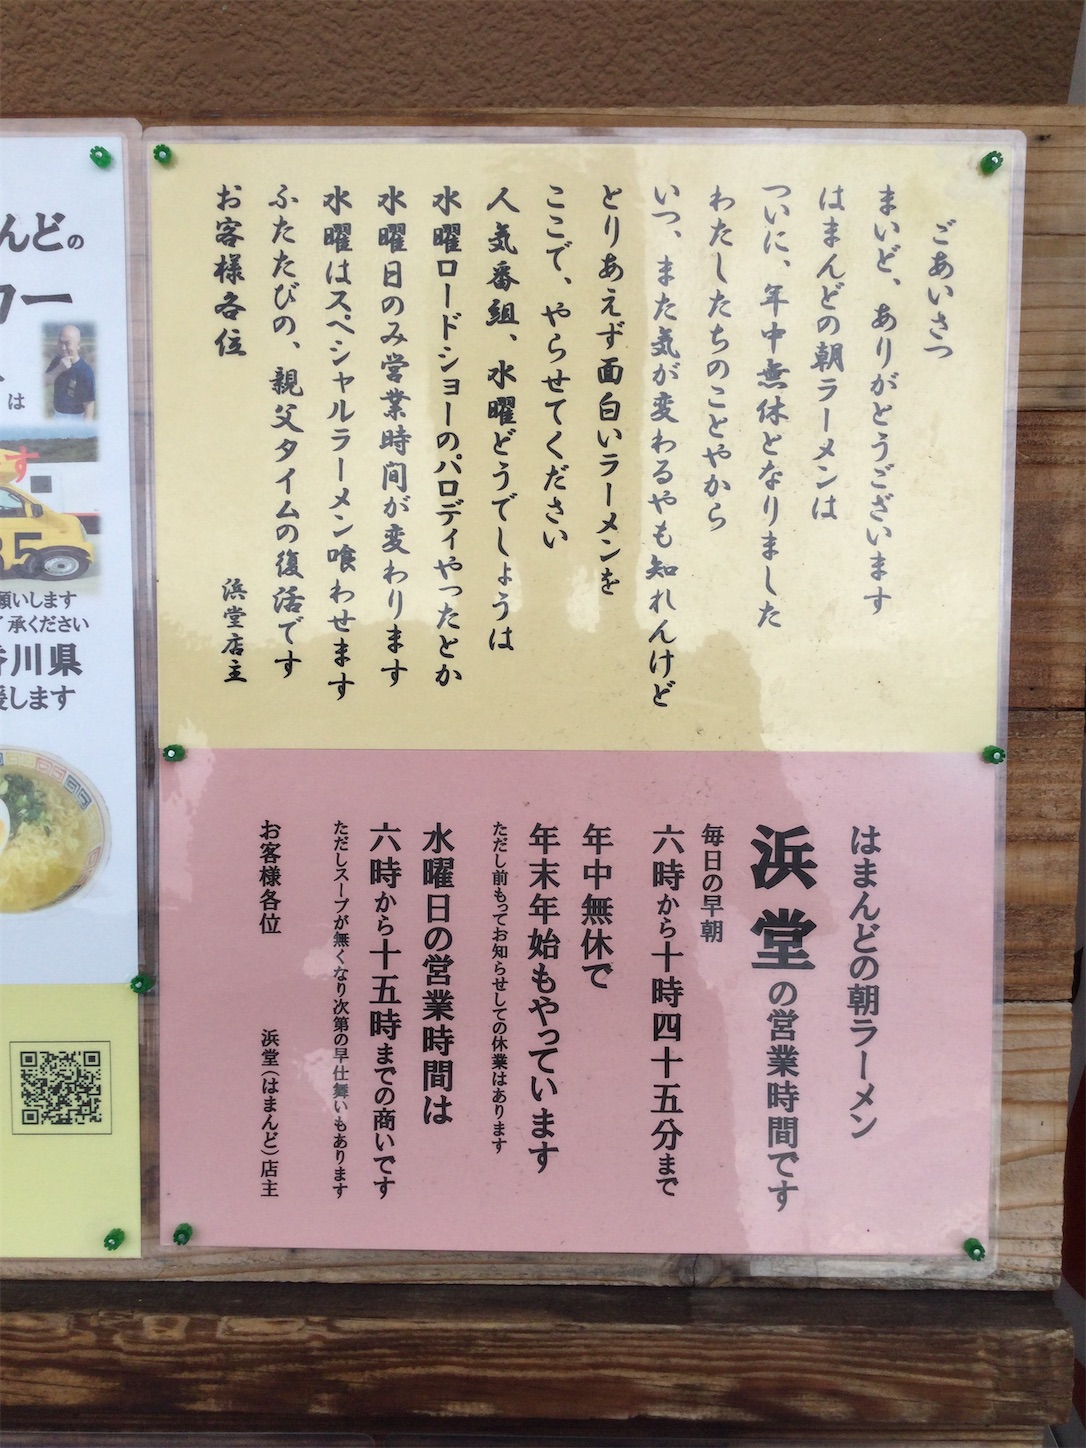 ごあいさつ
まいど、ありがとうございます
はまんどの朝ラーメンは
ついに、年中無休となりました
わたしたちのことやから
いつ、また気が変わるやも知れんけど
とりあえず面白いラーメンを
ここで、やらせてください
人気番組、水曜どうでしょうは
水曜ロードショーのパロディやったとか
水曜日のみ営業時間が変わります
水曜はスペシャルラーメン喰わせます
ふたたびの、親父タイムの復活です
お客様各位
浜堂店主
はまんどの朝ラーメン
浜堂の営業時間です
毎日の早朝
六時から十時四十五分まで
年中無休で
年末年始もやっています
ただし前もってお知らせしての休業はあります
水曜日の営業時間は
六時から十五時までの商いです
ただしスープが無くなり次第の早仕舞いもあります
お客様各位
浜堂(はまんど)店主
んどの
カー
は
す
35
願いします
了承ください
香川県
援します